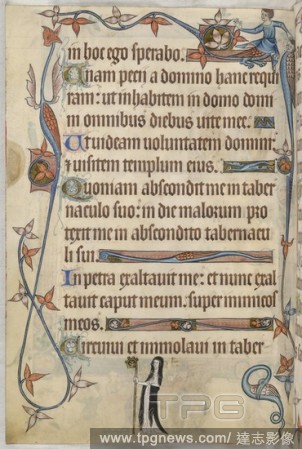 in hoc ego sperabo.
Unam pecii a domino hanc requi
ram: ut inhabitem in domo domi
ni omnibus diebus uite mee.
Ut uideam uoluntatem domini:
et uisitem templum eius.
Quoniam abscondit me in taber
naculo suo: in die malorum pro
texit me in abscondito tabernacu
li sui.
In petra exaltauit me: et nunc exal
tauit caput meum. super inimicos
meos.
Circuiui et immolaui in taber
TPG
www.tpgnews.com/達志影像